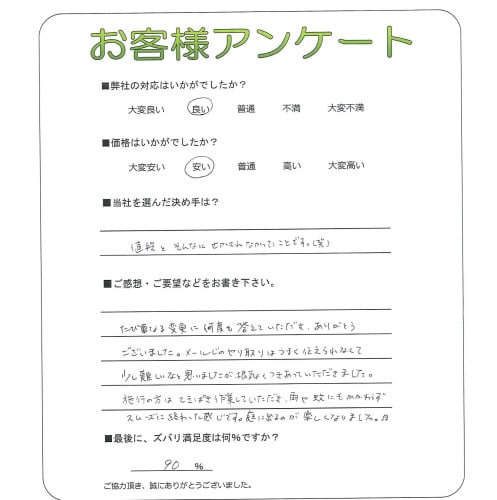 お客様アンケート
■弊社の対応はいかがでしたか？
大変良い 良い 普通 不満 大変不満
■価格はいかがでしたか？
大変安い 安い 普通 高い 大変高い
■当社を選んだ決め手は？
値段と そんなに せかされなかったことです。(笑)
■ご感想・ご要望などをお書き下さい。
たび重なる変更に何度も答えていただき、ありがとう
ございました。メールでのやり取りはうまく伝えられなくて
少し難しいなと思いましたが、根気よくつきあっていただきました。
施行の方は てきぱき作業していただき、雨や蚊にもかかわらず
スムーズに終わった感じです。庭に出るのが楽しくなりました。
■最後に、ズバリ満足度は何%ですか？
90 %
ご協力頂き、誠にありがとうございました。